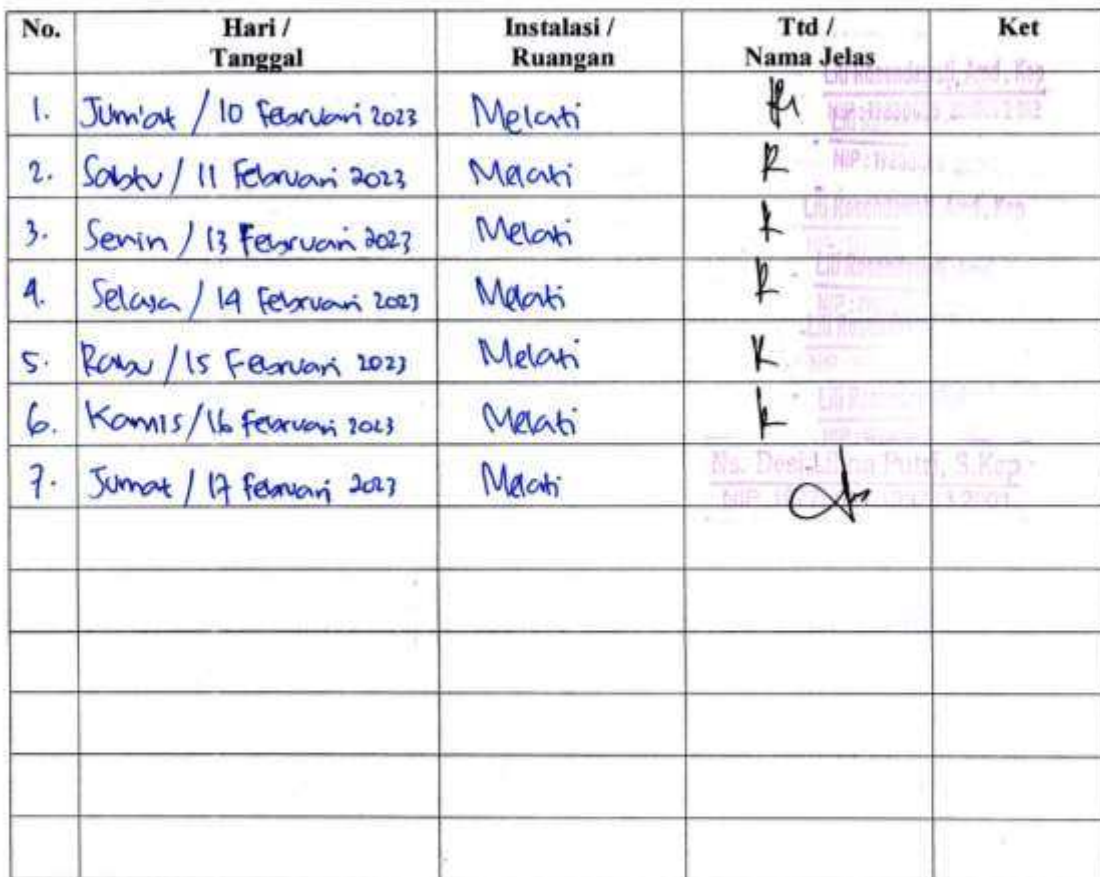 No. Hari / Tanggal Instalasi / Ruangan Ttd / Nama Jelas Ket
1. Jum'at / 10 Februari 2023 Melati
2. Sabtu / 11 Februari 2023 Melati
3. Senin / 13 Februari 2023 Melati
4. Selasa / 14 Februari 2023 Melati
5. Rabu / 15 Februari 2023 Melati
6. Kamis / 16 Februari 2023 Melati
Ns. Desi Putri, S.Kep
7. Jumat / 17 Februari 2023 Melati